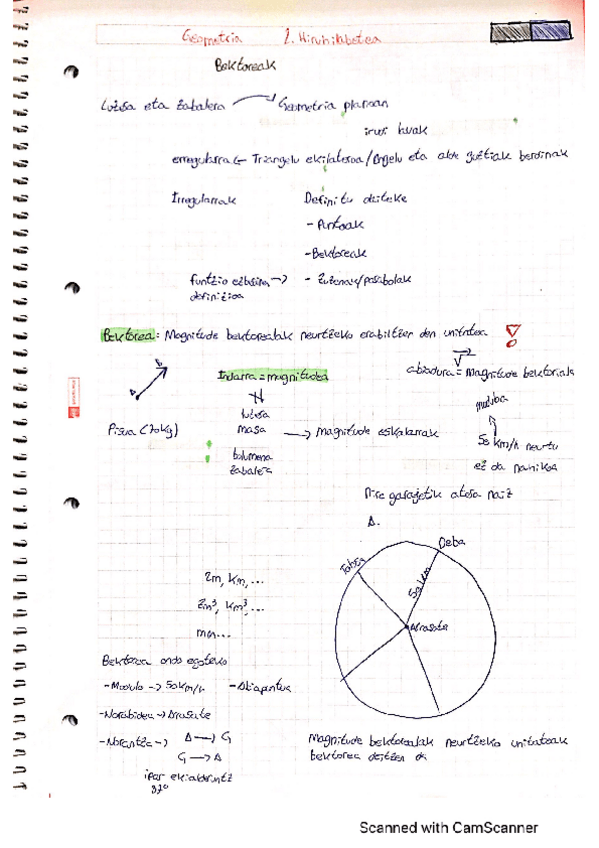 Geometria 2. Hiruhilabetea
Bektoreak
Luzera eta zabalera → Geometria planoan
irudi lauak
erregularra ← Triangelu ekilateroa / Angelu eta alde guztiak berdinak
Irregularrak Definitu daiteke
- Puntoak
- Bektoreak
funtzio ezberdin → - Zuzenak/parabolak
definizioa
Bektorea: Magnitude bektorealak neurtzeko erabiltzen den unitatea
Indarra = magnitudea
abiadura = Magnitude bektoriala
V
luzera
Pisua (70kg) masa → magnitude eskalarrak
bolumena
zabalera
moduloa
50 km/h neurtu
ez da nahikoa
Nire garajetik atera naiz
A.
Deba
50km
Arrasate
2m, km, ...
2m³, km³, ...
Bektorea ondo egoteko
- Modulo → 50km/h - Abiapuntua
- Norabidea → Arrasate
- Norantza → A → G
G → A
ipar ekialderuntz
37º
Magnitude bektorealak neurtzeko unitateak
bektorea deitzen da
Scanned with CamScanner